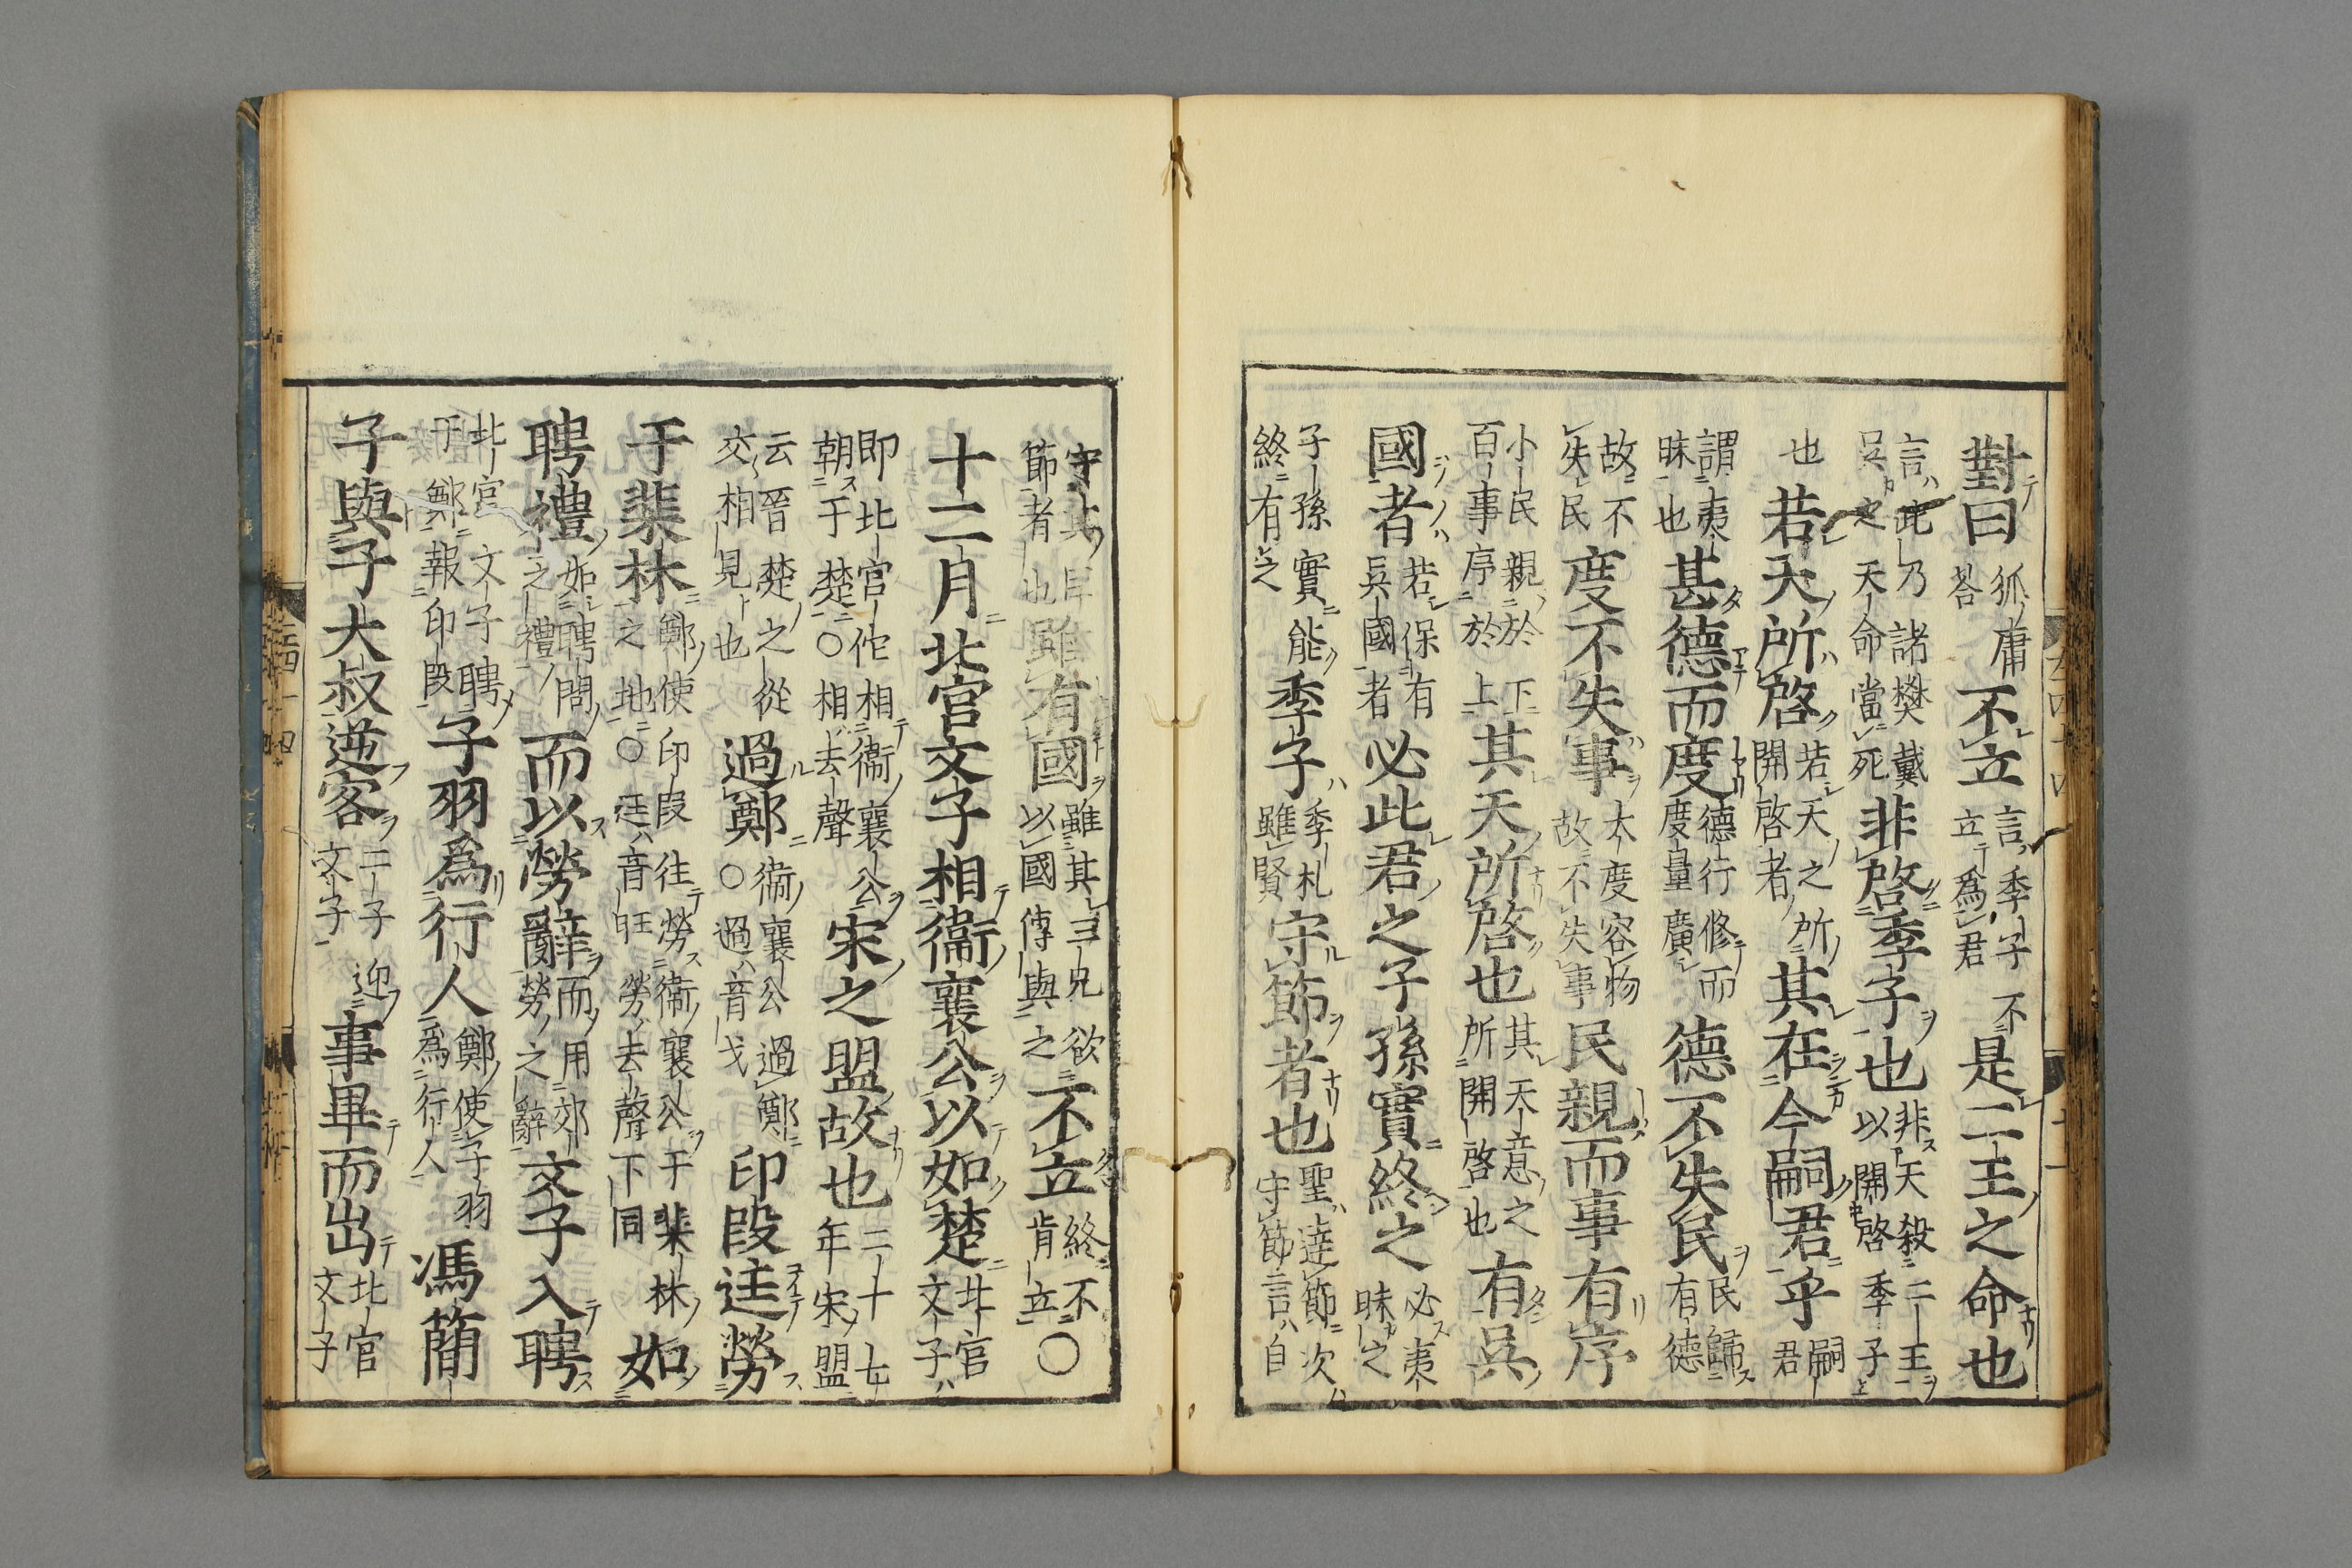 對曰狐庸荅不立言季子不立為君是二王之命也
言此乃諸樊戴吳之天命當死非啓季子也非天殺二王以開啓季子
也若天所啓若天之所開啓者其在今嗣君乎嗣君
謂夷昧也甚德而度德行修而度量廣德不失民民歸有德
故不失民度不失事大度容物故不失事民親而事有序
小民親於下百事序於上其天所啓也其天意之所開啓也有吳
國者若保有吳國者必此君之子孫實終之必夷昧之
子孫實能終有之季子季札雖賢守節者也聖達節次守節言自
守其節者也雖有國雖其三兄欲以國傳與之不立終不肯立○
十二月北宮文子相衞襄公以如楚北宮文子
即北宮佗相衞襄公朝于楚○相去聲宋之盟故也二十七年宋盟
云晉楚之從交相見也過鄭衞襄公過鄭○過音戈印段迋勞
于棐林鄭使印段往勞衞襄公于棐林之地○迋音旺勞去聲下同如
聘禮如聘問之禮而以勞辭而用郊勞之辭文子入聘
北宮文子聘于鄭報印段子羽為行人鄭使子羽為行人馮簡
子與子大叔逆客二子迎文子事畢而出北宮文子